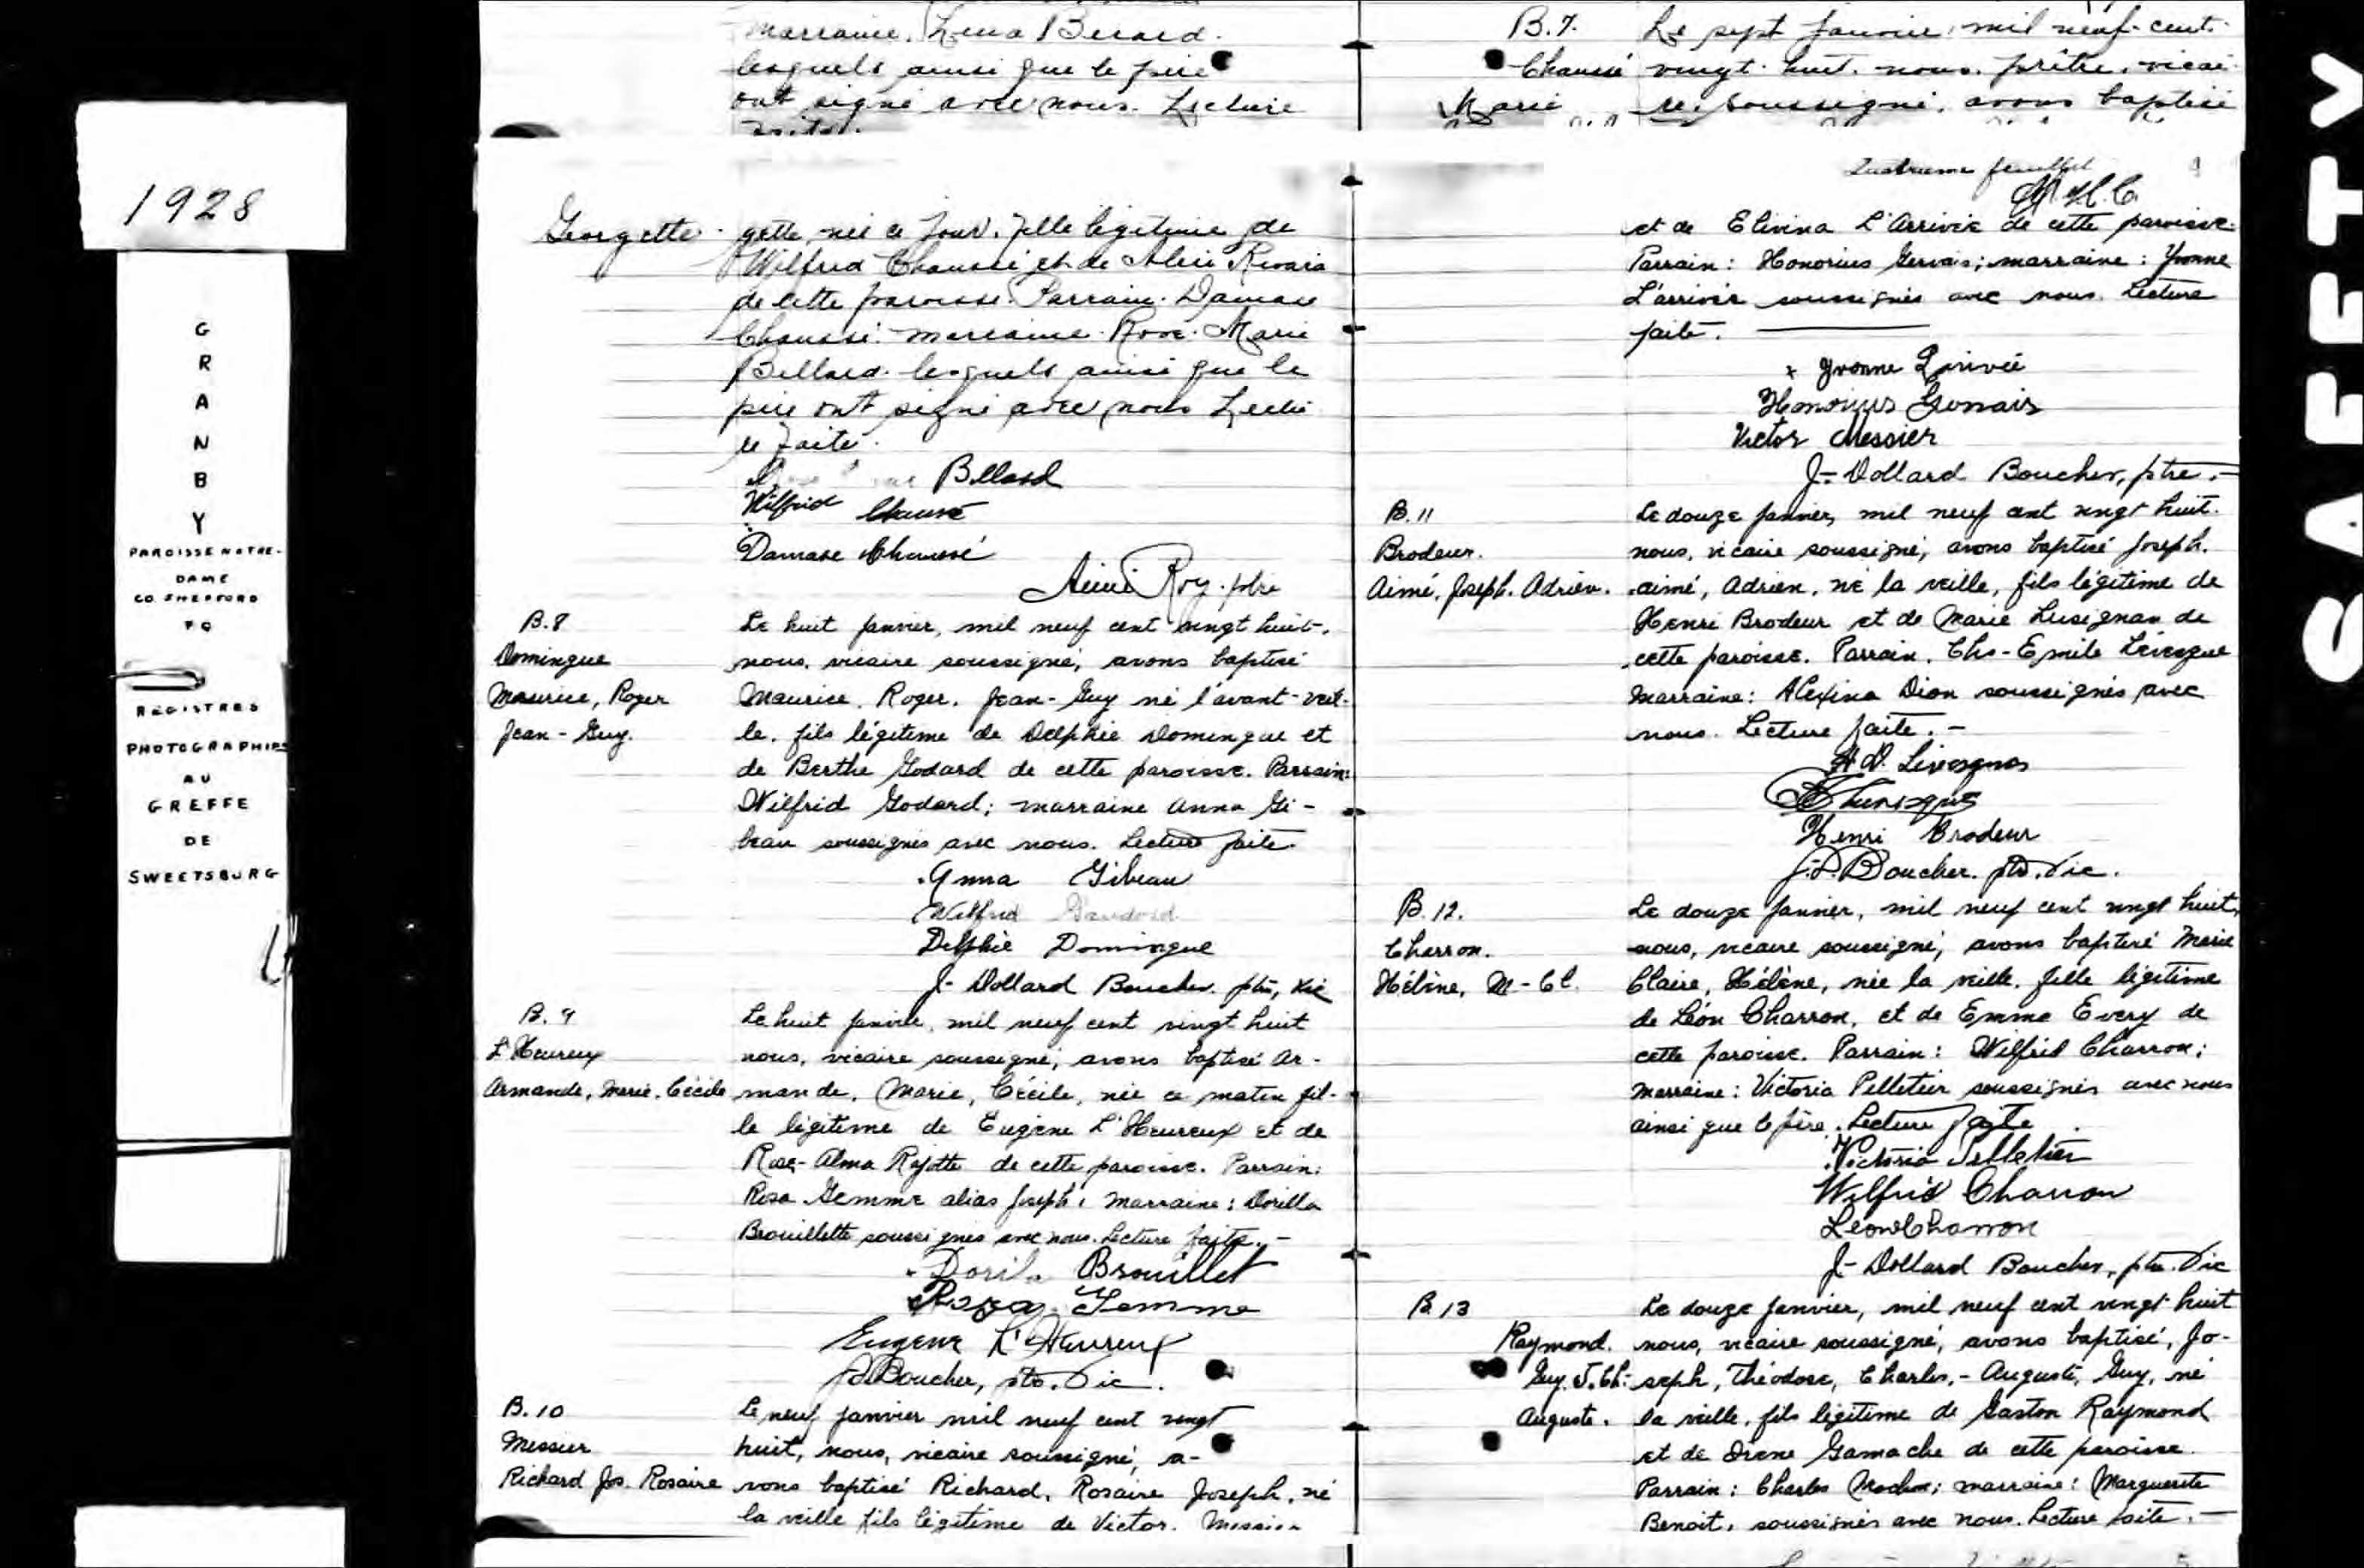 1928
G
R
A
N
B
Y
PAROISSE NOTRE-
DAME
CO. SHEFFORD
PQ
REGISTRES
PHOTOGRAPHIES
AU
GREFFE
DE
SWEETSBURG
marraine. Berard.
lesquels ainsi que le père
ont signé avec nous. Lecture
faite.
Georgette gette, née ce jour. fille légitime de
Wilfrid Chaussé et de
de cette paroisse. Parrain. Damase
Chaussé. marraine. Rose. Marie
Bellard. lesquels ainsi que le
père ont signé avec nous Lectu
re faite.
Bellard
Wilfrid Chaussé
Damase Chaussé
Aimé Roy. ptre
B.8 Le huit janvier, mil neuf cent vingt huit,
Domingue nous, vicaire soussigné, avons baptisé
Maurice, Roger Maurice. Roger. Jean-Guy né l'avant-veil-
Jean-Guy. le. fils légitime de Delphie Domingue et
de Berthe Godard de cette paroisse. Parrain:
Wilfrid Godard; marraine Anna Gi-
beau soussignés avec nous. Lecture faite
Anna Gibeau
Wilfrid
Delphie Domingue
J-Dollard Boucher. ptre, vic
B.9 Le huit janvier, mil neuf cent vingt huit
L'Heureux nous, vicaire soussigné, avons baptisé Ar-
Armande, Marie. Cécile mande, Marie, Cécile, née ce matin fil-
le légitime de Eugène L'Heureux et de
Rose-Alma Rajotte de cette paroisse. Parrain:
Rosa Gemme alias Joseph; marraine: Dorilla
Brouillette soussignés avec nous. Lecture faite.-
Dorila Brouillet
Rosa Gemme
Eugene L'Heureux
Boucher, ptre. Vic.
B.10 Le neuf janvier mil neuf cent vingt
Messier huit, nous, vicaire soussigné, a-
Richard Jos. Rosaire vons baptisé Richard, Rosaire Joseph, né
la veille fils légitime de Victor. Messier
B.7. Le sept janvier, mil neuf-cent-
Chaussé vingt-huit. nous. prêtre. vicai-
Marie re, soussigné, avons baptisé
Quatrième feuillet
et de Elivina L'Arrivée de cette paroisse.
Parrain: Honorius Gervais; marraine: Yvonne
L'arrivée soussignés avec nous. Lecture
faite.
Yvonne Larivée
Honorius Gervais
Victor Messier
J-Dollard Boucher, ptre.-
B.11 Le douze janvier, mil neuf cent vingt huit.
Brodeur. nous, vicaire soussigné, avons baptisé Joseph.
Aimé, Joseph. Adrien. aimé, Adrien, né la veille, fils légitime de
Henri Brodeur et de Marie Lusignan de
cette paroisse. Parrain. Chs-Emile Lévesque
Marraine: Alexina Dion soussignés avec
nous. Lecture faite.-
Henri Brodeur
J.D. Boucher. ptre. Vic.
B.12. Le douze janvier, mil neuf cent vingt huit,
Charron. nous, vicaire soussigné, avons baptisé Marie
Hélène, M-Cl. Claire, Hélène, née la veille. fille légitime
de Léon Charron, et de Emma Every de
cette paroisse. Parrain: Wilfrid Charron;
Marraine: Victoria Pelletier soussignés avec nous
ainsi que le père. Lecture faite
Victoria Pelletier
Wilfrid Charron
Leon Charron
J-Dollard Boucher, ptre. Vic
B.13 Le douze janvier, mil neuf cent vingt huit
Raymond. nous, vicaire soussigné, avons baptisé, Jo-
Guy. T. Ch- seph, Théodore, Charles,-Auguste, Guy, né
Auguste. la veille, fils légitime de Gaston Raymond
et de Irene Gamache de cette paroisse.
Parrain: Charles marraine: Marguerite
Benoit, soussignés avec nous. Lecture faite.-
SAFETY